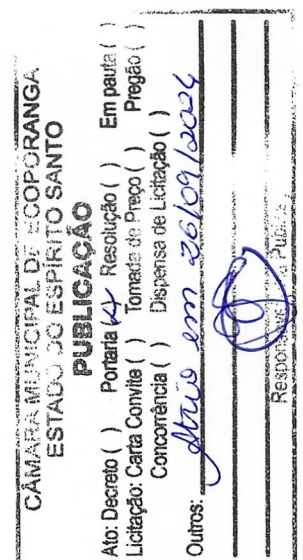 CÂMARA MUNICIPAL DE ECOPORANGA
ESTADO DO ESPÍRITO SANTO
PUBLICAÇÃO
Ato: Decreto ( ) Portaria (x) Resolução ( ) Em pauta ( )
Licitação: Carta Convite ( ) Tomada de Preço ( ) Pregão ( )
Concorrência ( ) Dispensa de Licitação ( )
Outros: Átrio em 26/09/2024